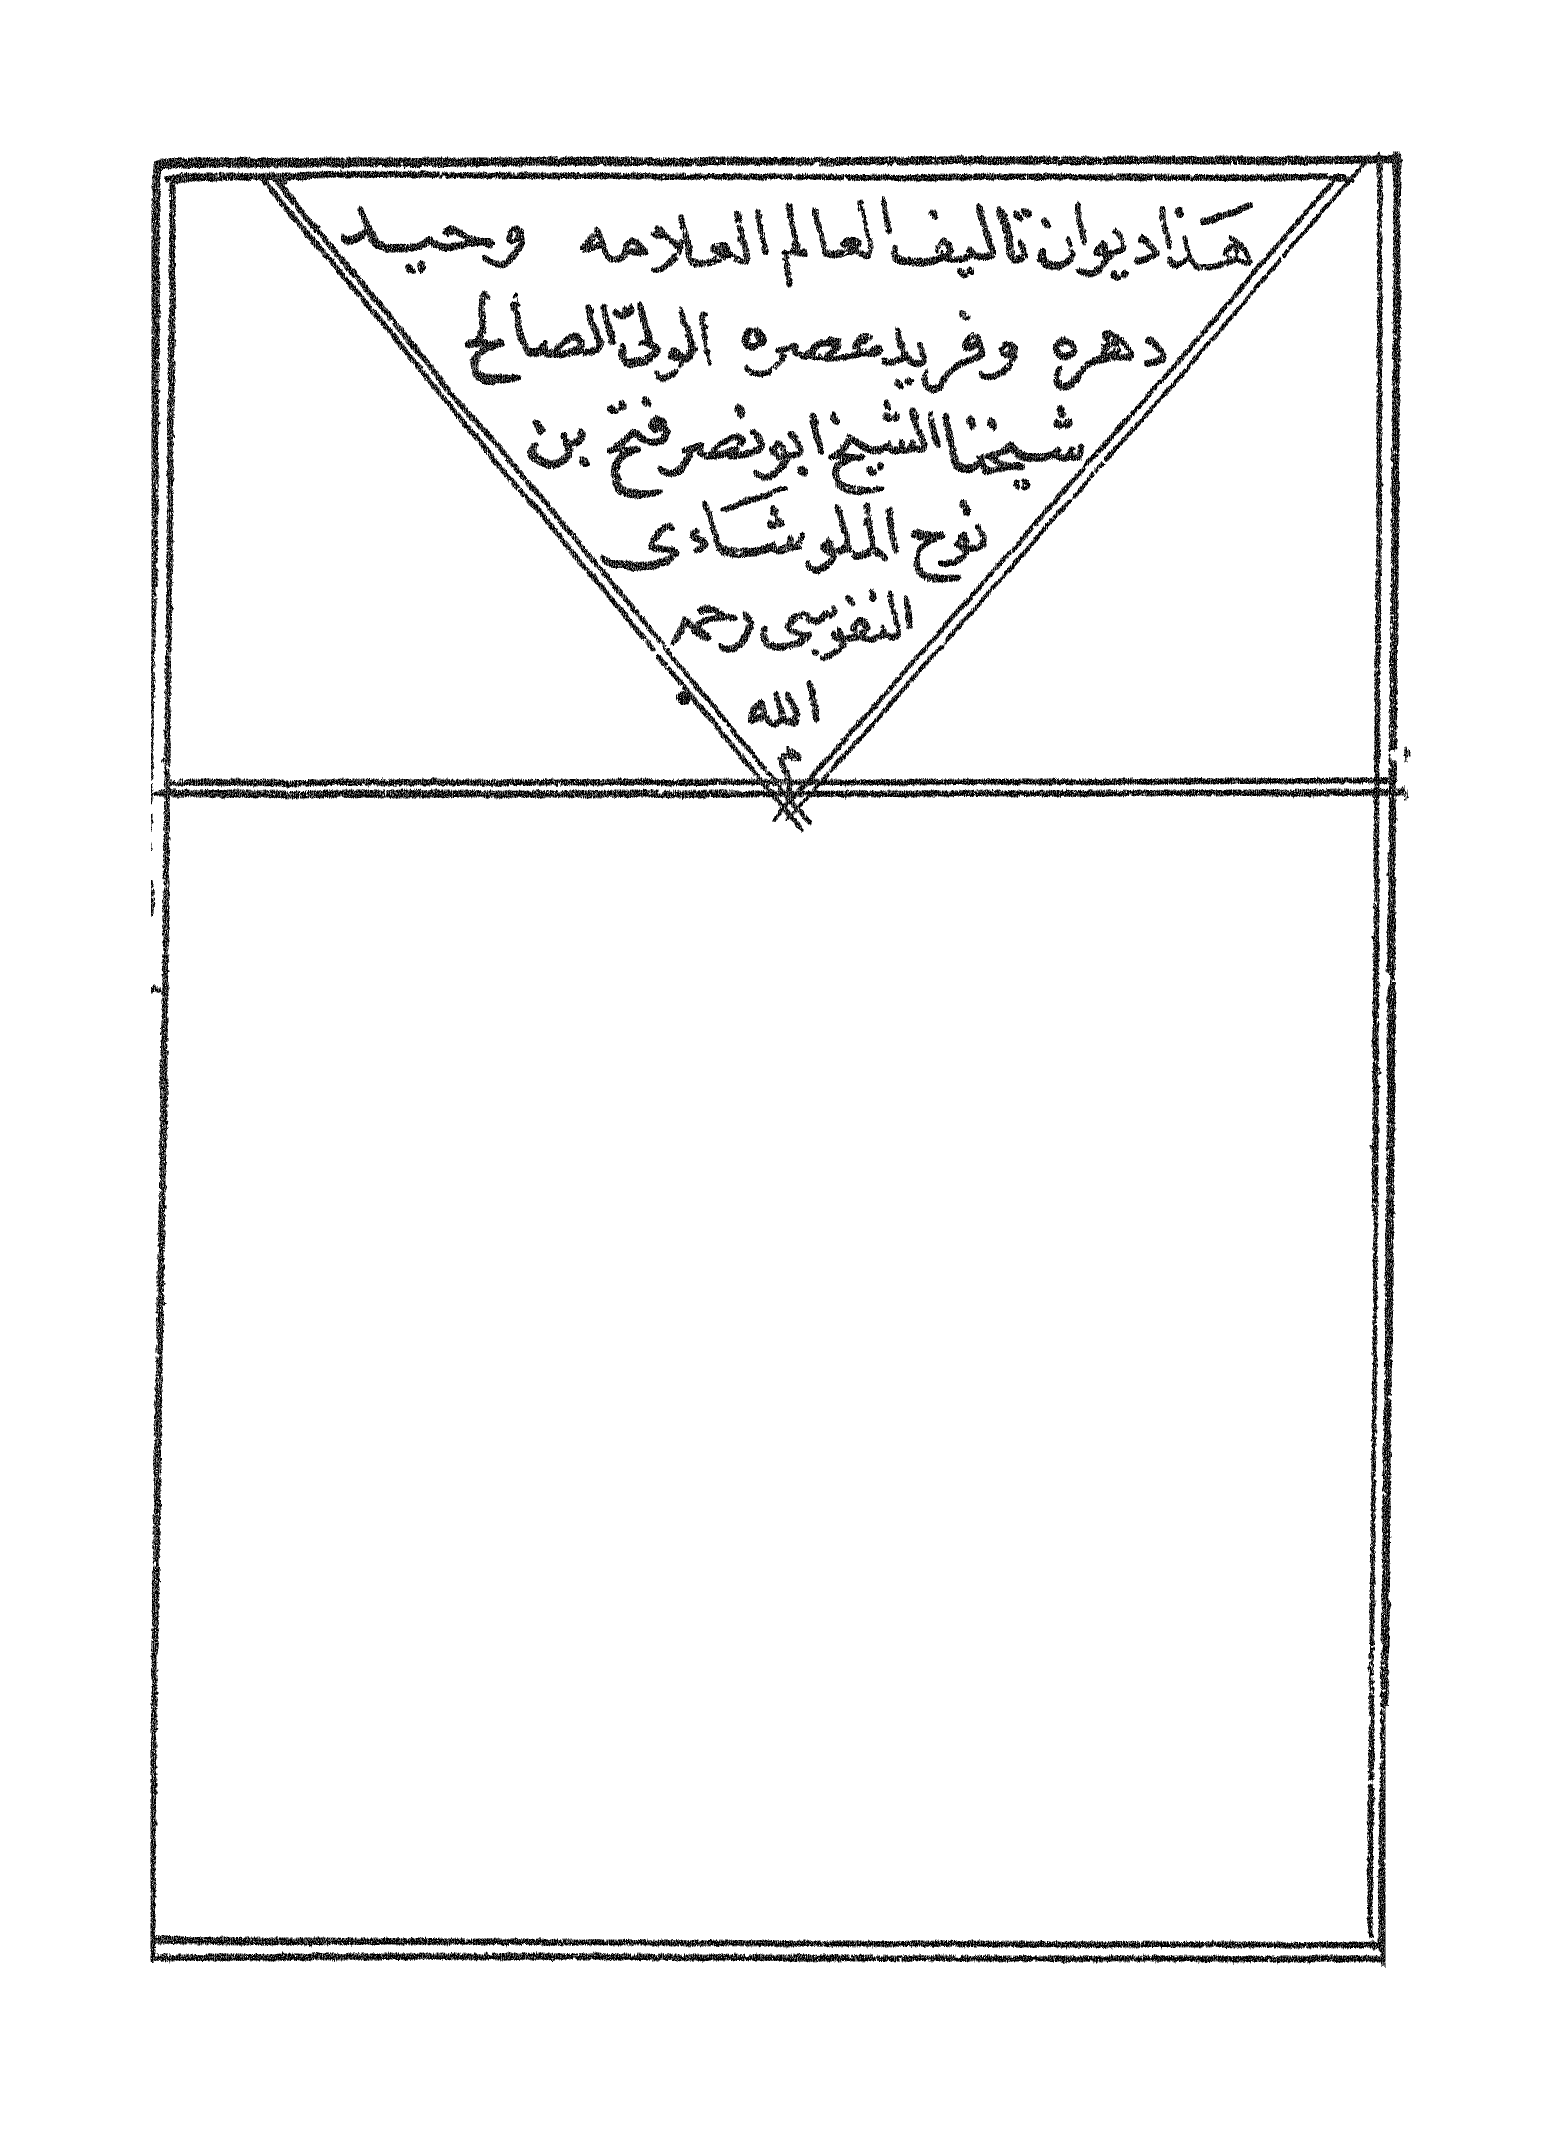 هذا ديوان تاليف العالم العلامه وحيد
دهره وفريد عصره الوليّ الصالح
شيخنا الشيخ ابو نصر فتح بن
نوح الملوشاءى
النفوسى رحمه
الله
م